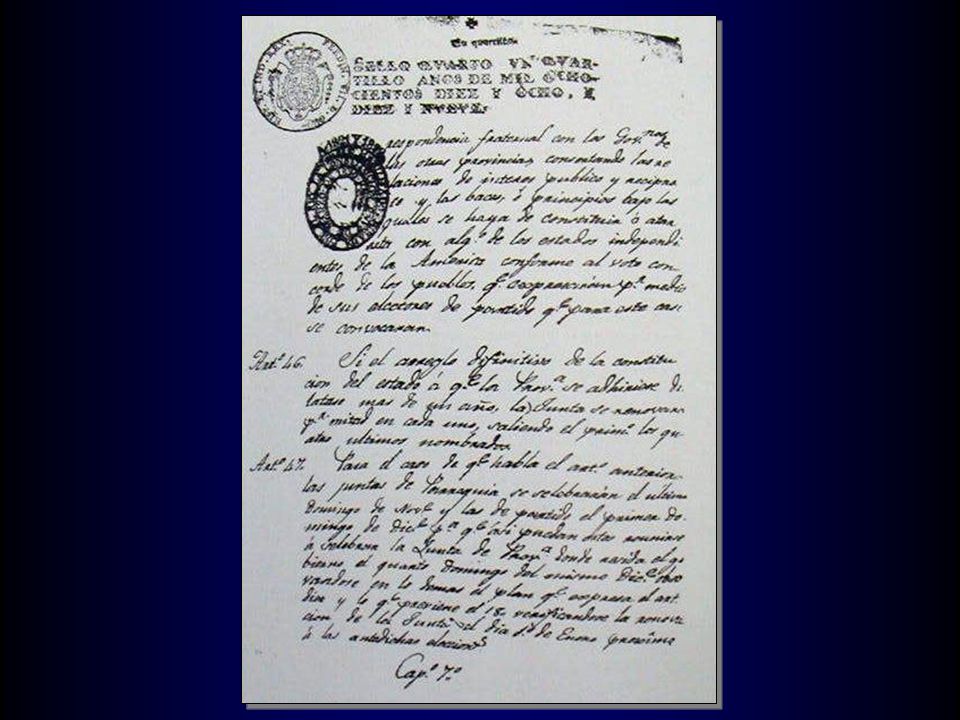 Un quartillo.
SELLO QVARTO VN QVAR-
TILLO ANOS DE MIL OCHO-
CIENTOS DIEZ Y OCHO, Y
DIEZ Y NVEVE.
FERDIN. VII. D.
ET IND. REX.
respondencia fraternal con los Gov.nos de
las otras provincias, consentando las re
laciones de interes publico y recipro
co y, las baces, ó principios bajo las
quales se haya de constituir ó
con alg.o de los estados independi
entes, de la America conforme al voto con
corde de los pueblos, q.e expresarán p.r medio
de sus electores de partido q.e para este caso
se convocaran.
Art.o 46. Si el arreglo difinitivo de la constitu
cion del estado á q.e la Prov.a se adhiriese di
latase mas de un año, la Junta se renovara
p.r mitad en cada uno, saliendo el prim.o los qu
atro ultimos nombrados.
Art.o 47. Para el caso de q.e habla el art.o anterior
las juntas de Parroquia se selebrarán el ultimo
Domingo de Nov.e y las de partido el primer do
mingo de Dic.e p.a q.e asi puedan estas reunirse
á selebrar la Junta de Prov.a donde resida el go
bierno el quarto Domingo del mismo Dic.e obse
vandose en lo demas el plan q.e expresa el art.
diez y lo q.e previene el 18. verificandose la renova
cion de la Junta el dia 1.o de Enero proximo
á las antedichas elecciones
Cap.o 7.o